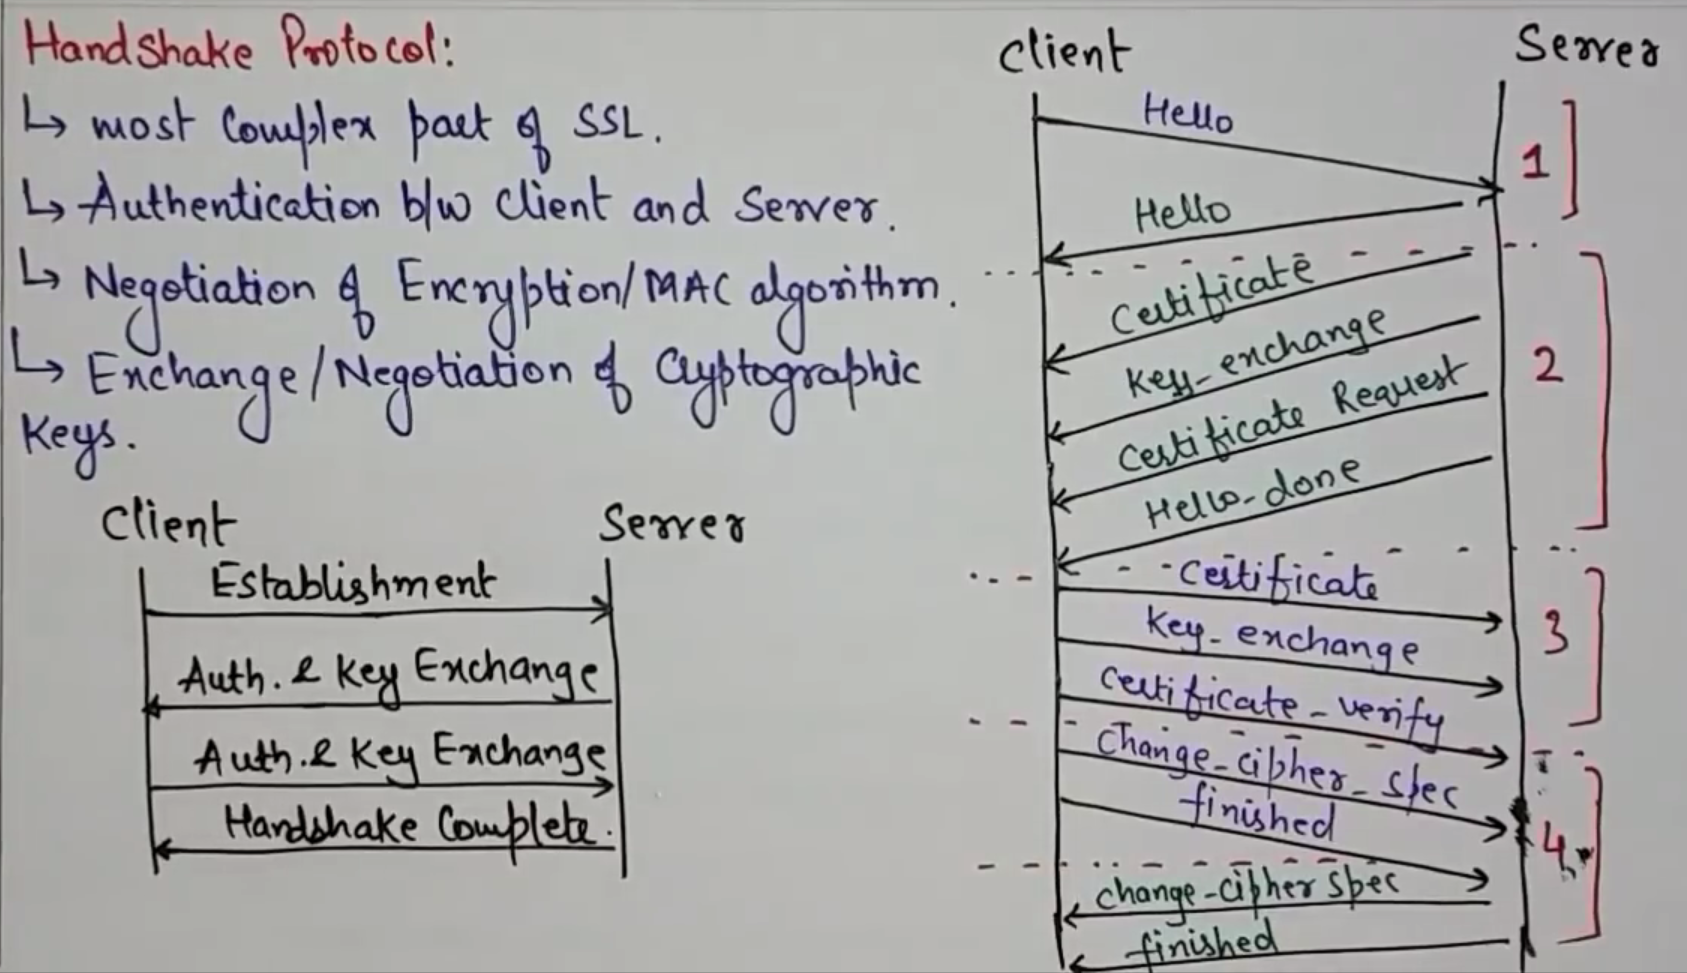 Handshake Protocol:
↳ most Complex part of SSL.
↳ Authentication b/w Client and Server.
↳ Negotiation of Encryption/MAC algorithm.
↳ Exchange/Negotiation of Cryptographic
Keys.
Client Server
Establishment
Auth. & Key Exchange
Auth. & Key Exchange
Handshake Complete.
Client Server
Hello
1
Hello
Certificate
Key_exchange
2
Certificate Request
Hello_done
Certificate
Key_exchange
3
Certificate_verify
Change_cipher_spec
finished
4
change_cipher spec
finished